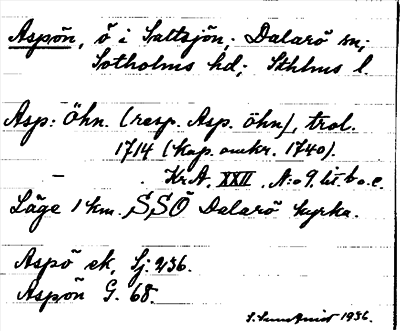 Aspön, ö i Saltsjön; Dalarö sn;
Sotholms hd; Sthlms l.
Asp: Öhn. (resp. Asp. Öhn), trol.
1714 (Kap. omkr. 1740).
– Kr.A. XXII. N:o 9. lit. b o. c.
Läge 1 km. SSÖ Dalarö kyrka.
Aspö ek, Sj: 236.
Aspön G. 68.
1936.